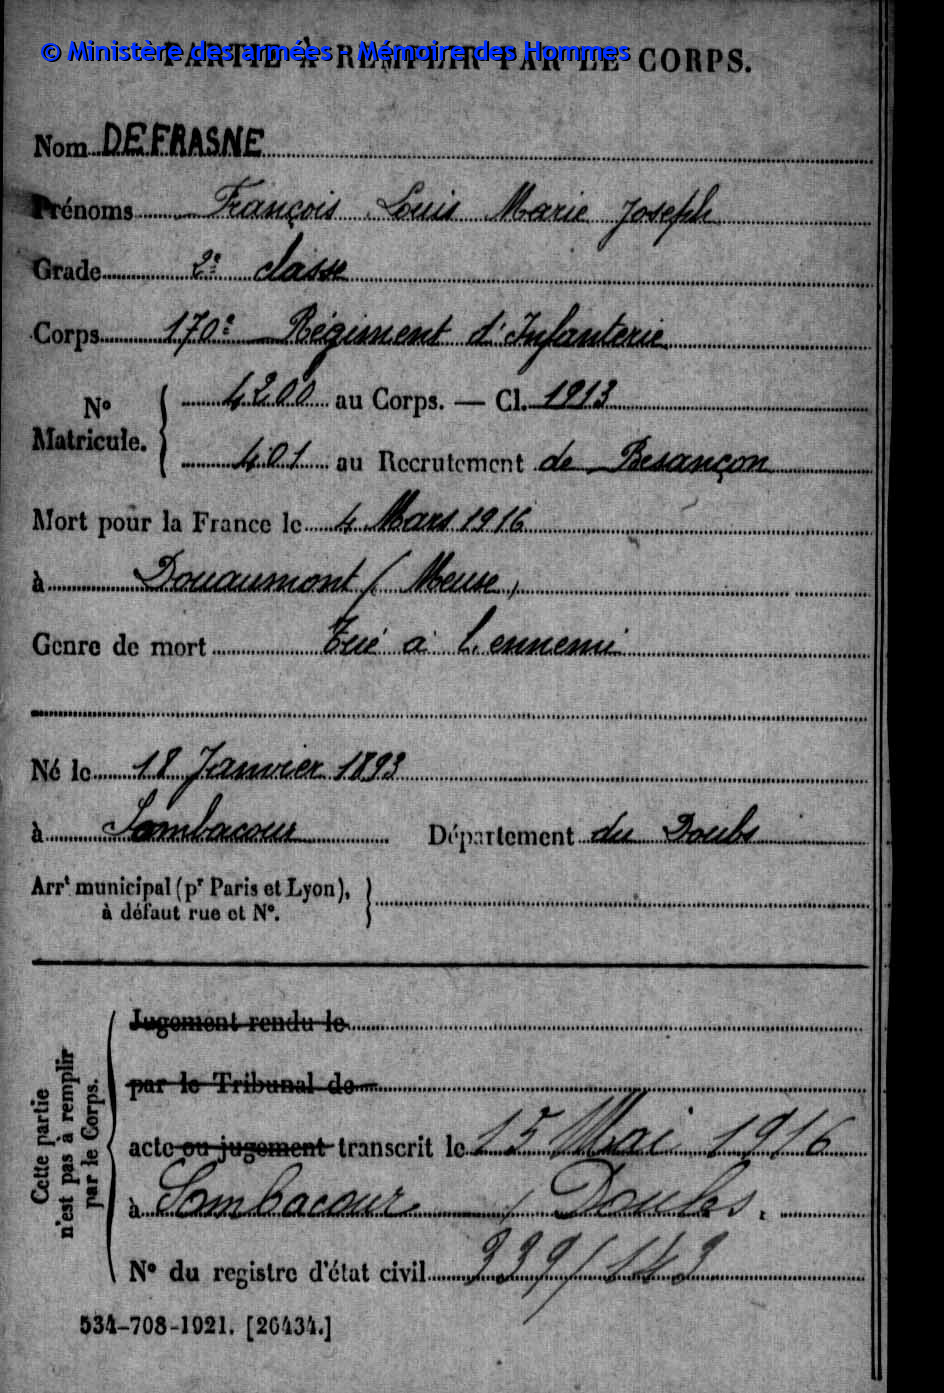 © Ministère des armées - Mémoire des Hommes
PARTIE À REMPLIR PAR LE CORPS.
Nom DEFRASNE
Prénoms François Louis Marie Joseph
Grade 2e classe
Corps 170e Régiment d'Infanterie
N° Matricule. 4200 au Corps. — Cl. 1913
401 au Recrutement de Besançon
Mort pour la France le 4 Mars 1916
à Douaumont (Meuse)
Genre de mort Tué à l'ennemi
Né le 18 Janvier 1893
à Sombacour Département du Doubs
Arrt municipal (pr Paris et Lyon),
à défaut rue et N°.
Jugement rendu le
par le Tribunal de
acte ou jugement transcrit le 15 Mai 1916
à Sombacour (Doubs.
N° du registre d'état civil 339/143
Cette partie
n'est pas à remplir
par le Corps.
534-708-1921. [26434.]